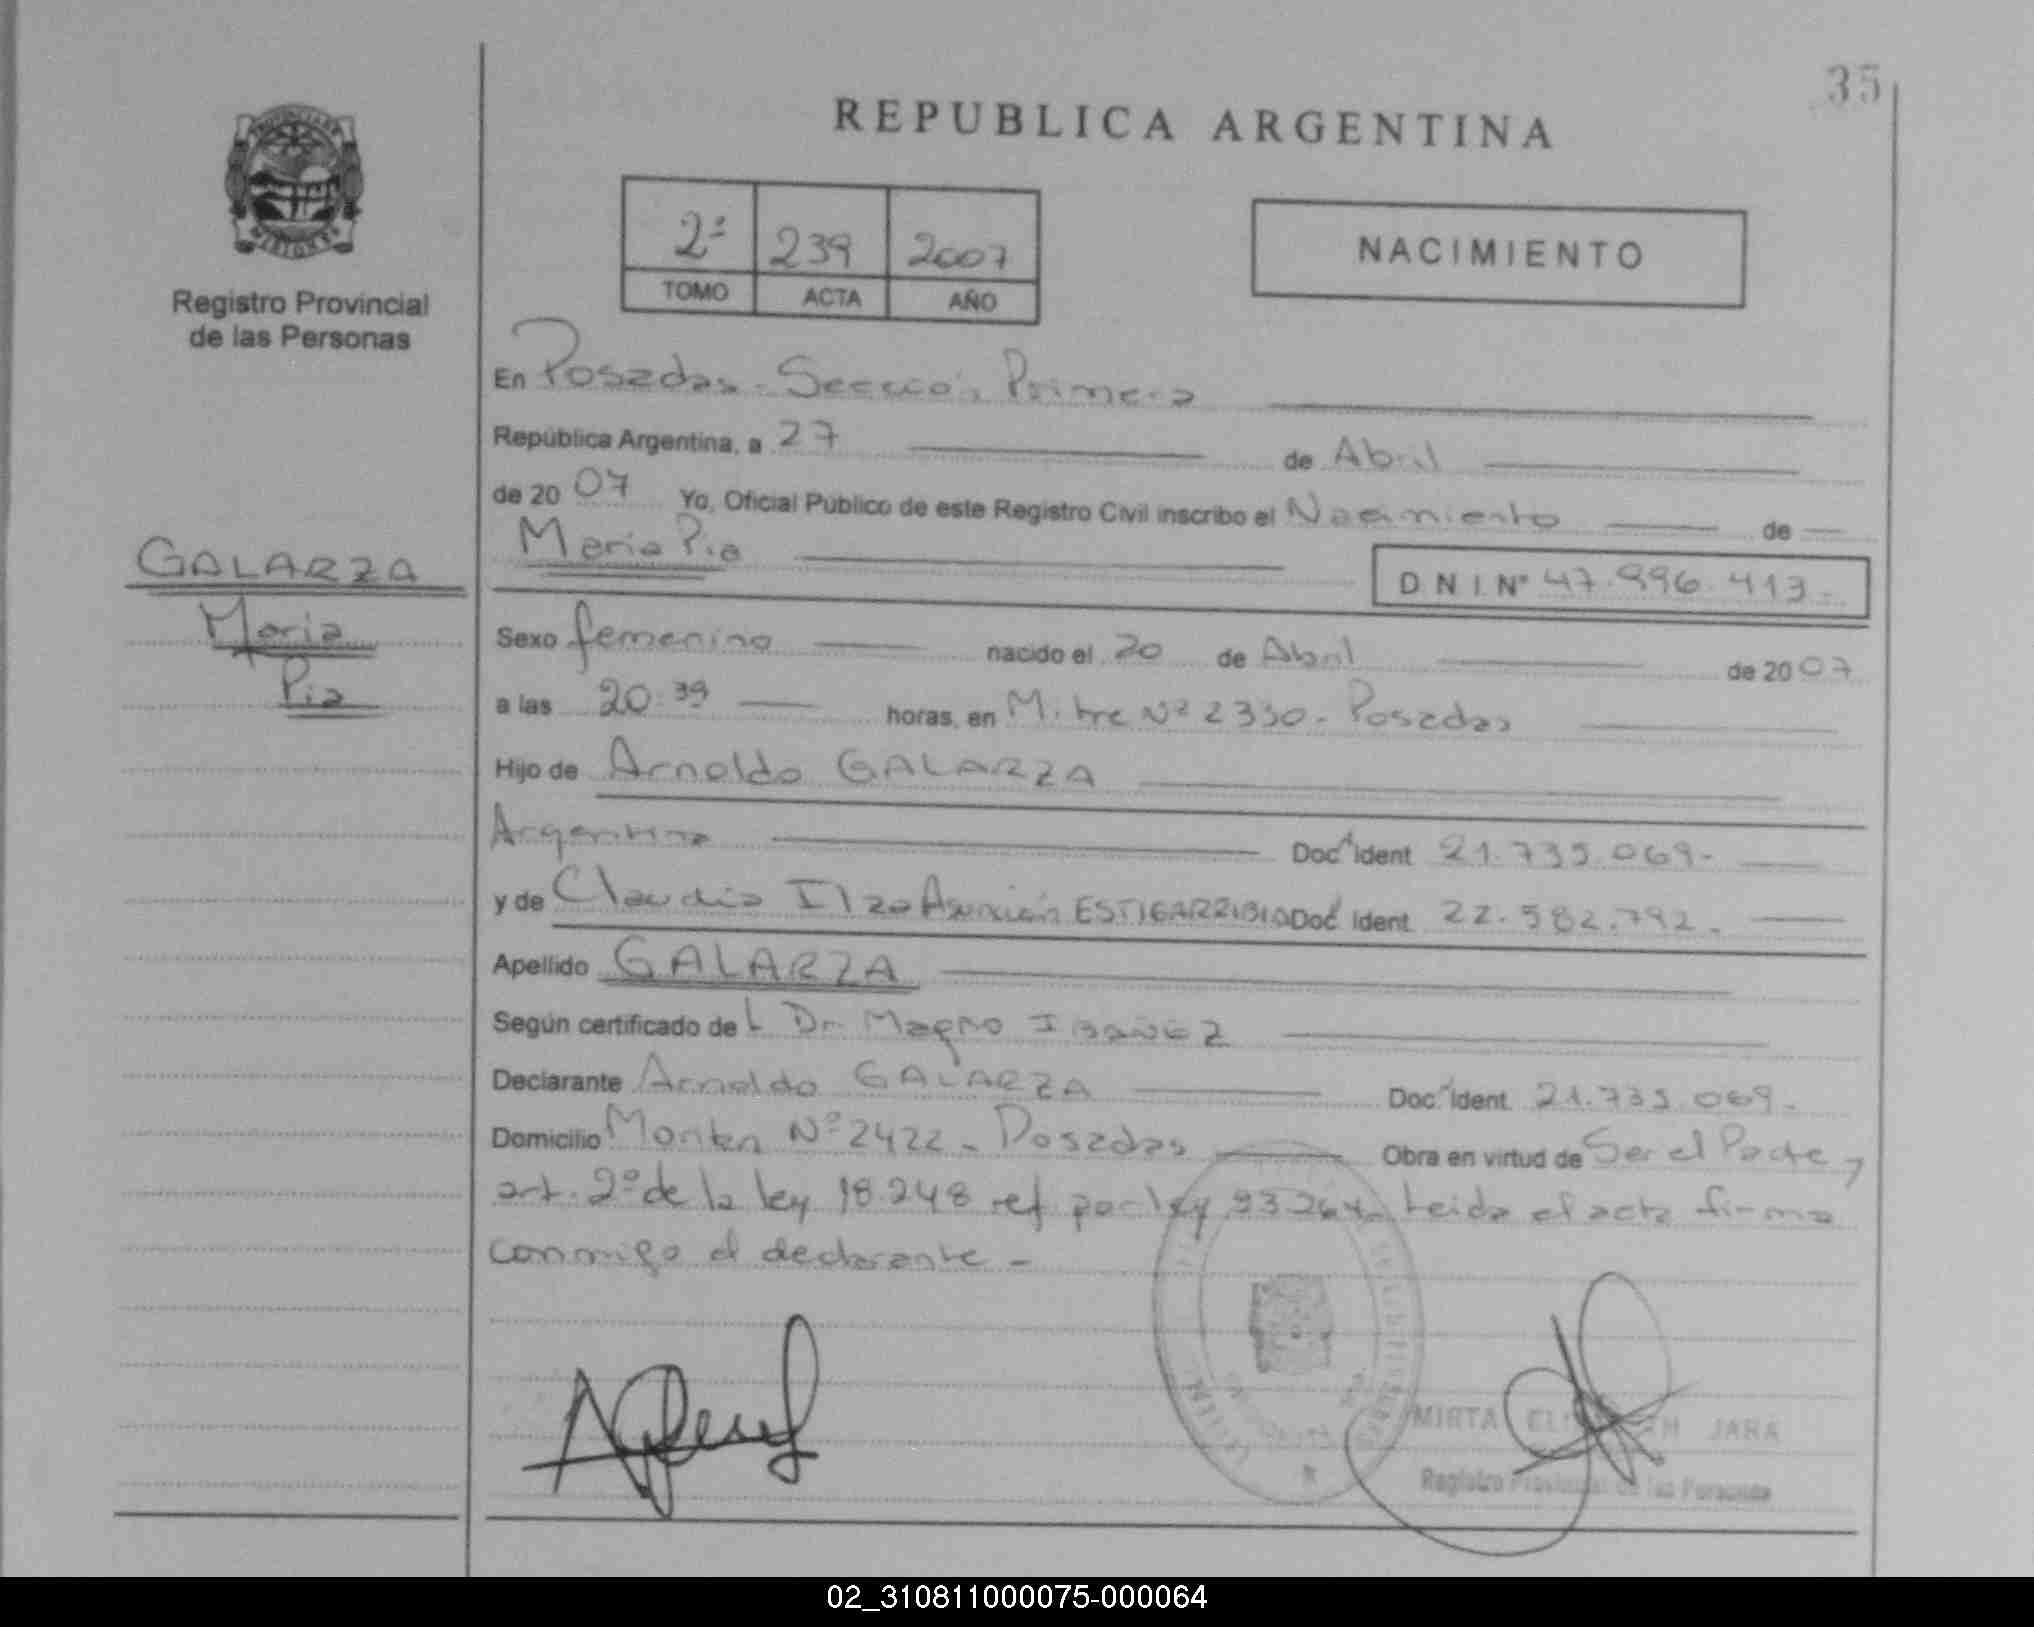 35
REPUBLICA ARGENTINA
PROVINCIA DE
MISIONES
Registro Provincial
de las Personas
2º 239 2007
TOMO ACTA AÑO
NACIMIENTO
En Posadas - Sección Primera
República Argentina, a 27 de Abril
de 20 07 Yo, Oficial Público de este Registro Civil inscribo el Nacimiento de
GALARZA
Maria
Pia
Maria Pia
D N I Nº 47.996.413.-
Sexo femenino nacido el 20 de Abril de 20 07
a las 20:39 horas, en Mitre Nº 2330 - Posadas
Hijo de Arnoldo GALARZA
Argentina Doc. Ident 21.735.069.-
y de Claudia Ilza Asunción ESTIGARRIBIA Doc. Ident. 22.582.792.-
Apellido GALARZA
Según certificado del Dr. Magno IBAÑEZ
Declarante Arnoldo GALARZA Doc. Ident. 21.735.069.-
Domicilio Nº 2422 - Posadas Obra en virtud de Ser el Padre y
art. 2º de la ley 18.248 ref por ley 23.264.- Leida el acta firma
conmigo el declarante -
MIRTA JARA
Registro Provincial de las Personas
02_310811000075-000064